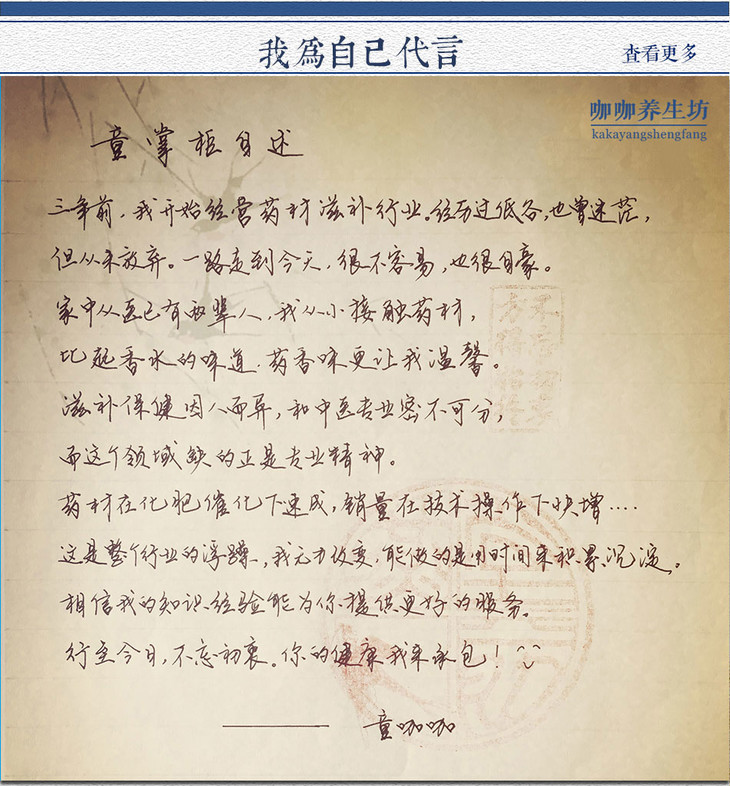 我為自己代言
查看更多
咖咖养生坊
kakayangshengfang
童掌柜自述
三年前,我开始经营药材滋补行业。经历过低谷,也曾迷茫,
但从未放弃。一路走到今天,很不容易,也很自豪。
家中从医已有两辈人,我从小接触药材,
比起香水的味道,药香味更让我温馨。
滋补保健因人而异,和中医专业密不可分,
而这个领域缺的正是专业精神。
药材在化肥催化下速成,销量在技术操作下快增....
这是整个行业的浮躁,我无力改变,能做的是用时间来积累沉淀。
相信我的知识经验能为你提供更好的服务。
行至今日,不忘初衷。你的健康我来承包!
童咖咖